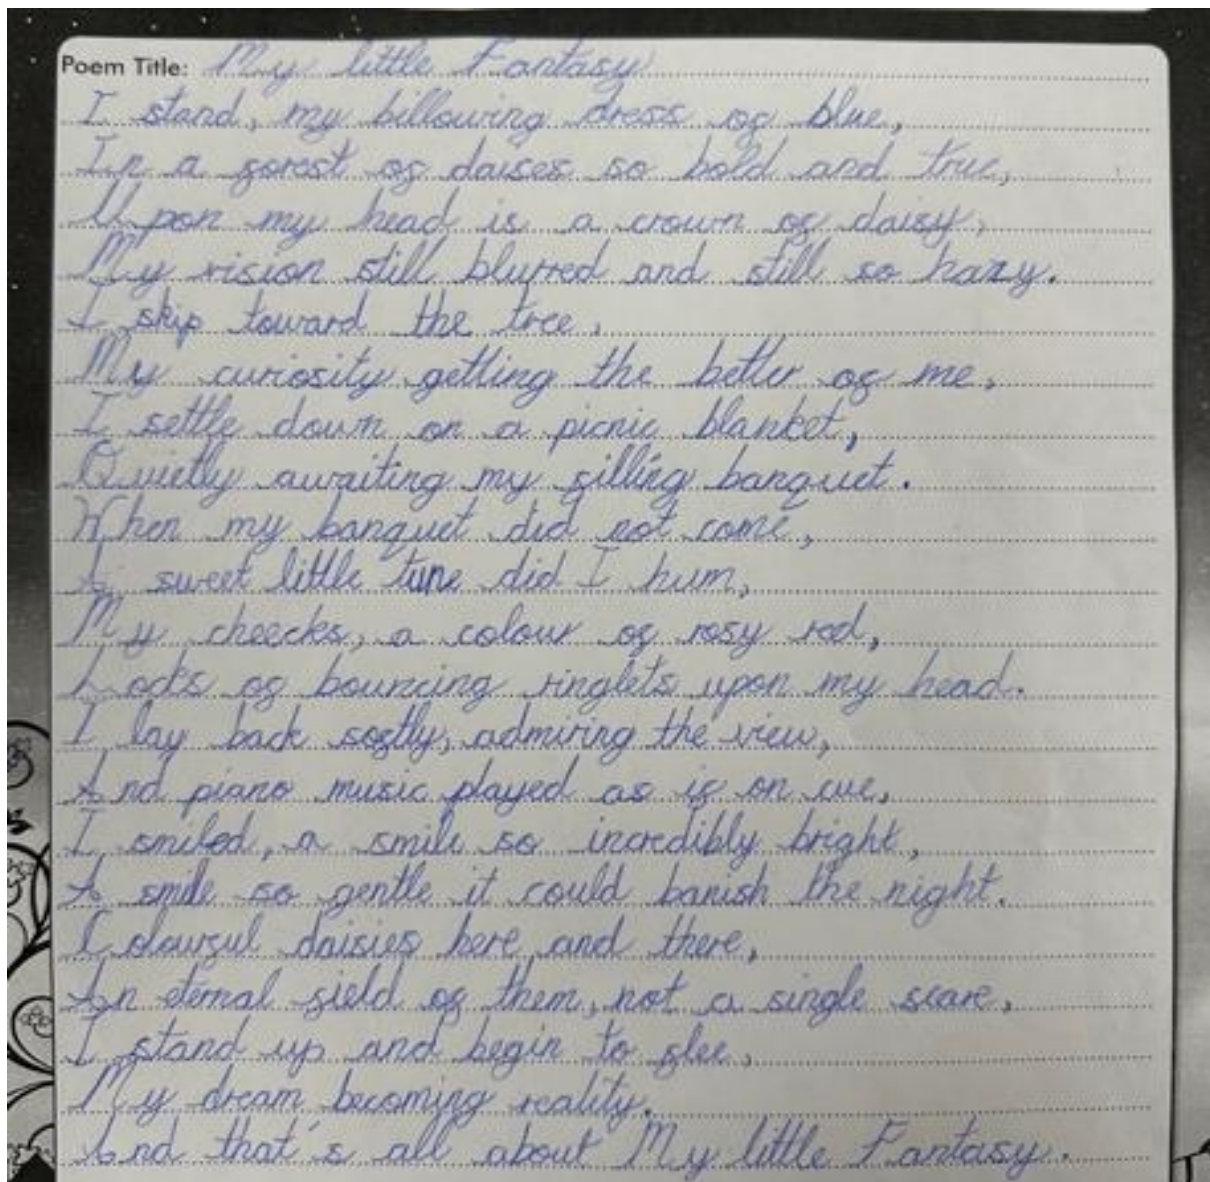 Poem Title: My little Fantasy
I stand, my billowing dress of blue,
In a forest of daises so bold and true,
Upon my head is a crown of daisy,
My vision still blurred and still so hazy.
I skip toward the tree,
My curiosity getting the better of me,
I settle down on a picnic blanket,
Quietly awaiting my filling banquet.
When my banquet did not come,
A sweet little tune did I hum,
My cheecks, a colour of rosy red,
Locks of bouncing ringlets upon my head.
I lay back softly, admiring the view,
And piano music played as if on cue,
I smiled, a smile so incredibly bright,
A smile so gentle it could banish the night.
Colourful daisies here and there,
An eternal field of them, not a single scare,
I stand up and begin to flee,
My dream becoming reality.
And that's all about My little Fantasy.